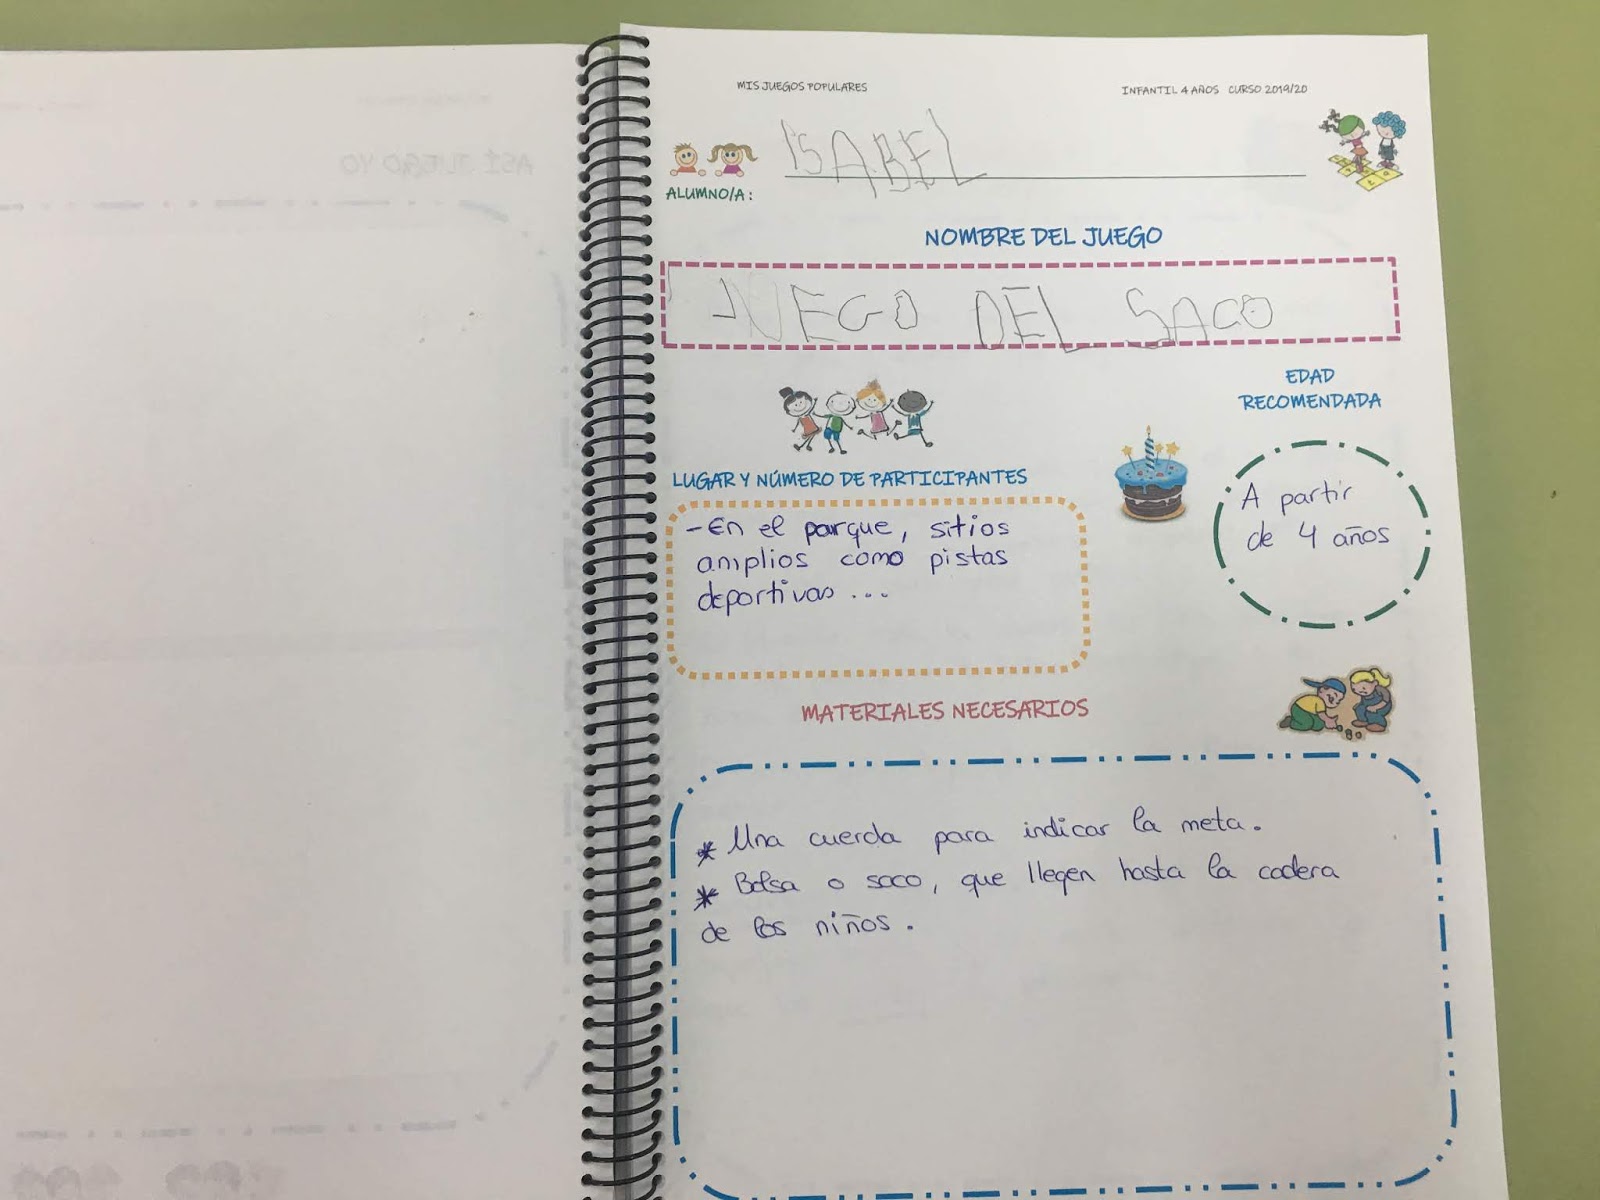 MIS JUEGOS POPULARES
INFANTIL 4 AÑOS CURSO 2019/20
ISABEL
ALUMNO/A:
NOMBRE DEL JUEGO
JUEGO DEL SACO
EDAD
RECOMENDADA
LUGAR Y NÚMERO DE PARTICIPANTES
A partir
de 4 años
-En el parque, sitios
amplios como pistas
deportivas ...
MATERIALES NECESARIOS
* Una cuerda para indicar la meta.
* Bolsa o saco, que llegen hasta la cadera
de los niños.
ASÍ JUEGO YO